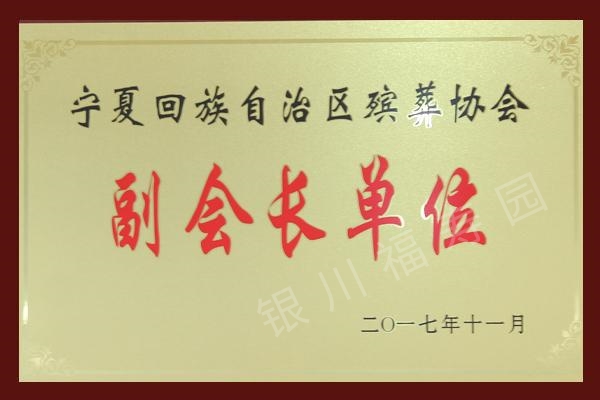 宁夏回族自治区殡葬协会
副会长单位
二〇一七年十一月
银川福寿园